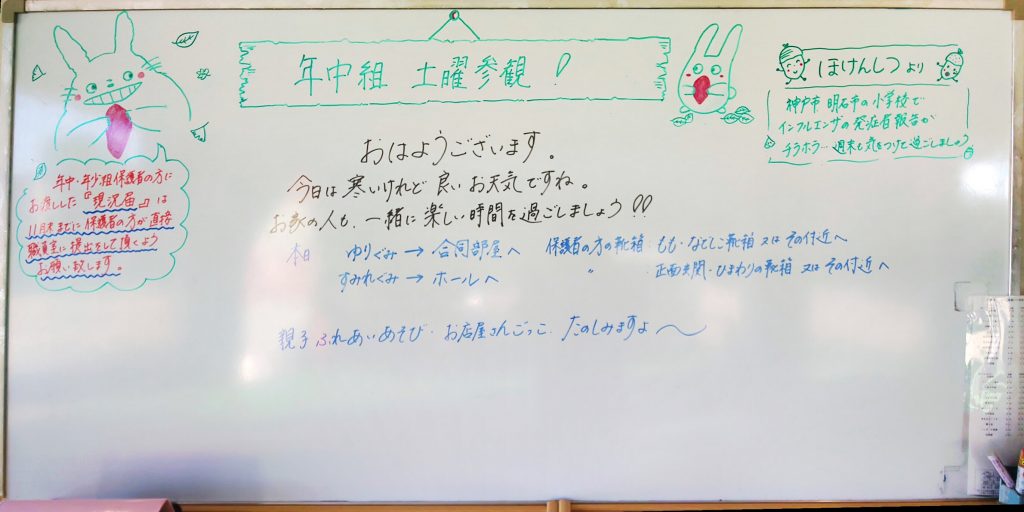 年中組 土曜参観!
ほけんしつ より
神戸市 明石市の小学校で
インフルエンザの発症者報告が
チラホラ… 週末も気をつけて過ごしましょう
おはようございます。
今日は寒いけれど 良いお天気ですね。
お家の人も、一緒に楽しい時間を過ごしましょう!!
年中・年少組保護者の方に
お渡しした『現況届』は
11月末までに保護者の方が直接
職員室に提出をして頂くよう
お願い致します。
本日 ゆりぐみ → 合同部屋へ 保護者の方の靴箱:もも・なでしこ靴箱 又は その付近へ
すみれぐみ → ホールへ 〃 :正面玄関・ひまわりの靴箱 又は その付近へ
親子ふれあいあそび・お店屋さんごっこ たのしみますよ〜